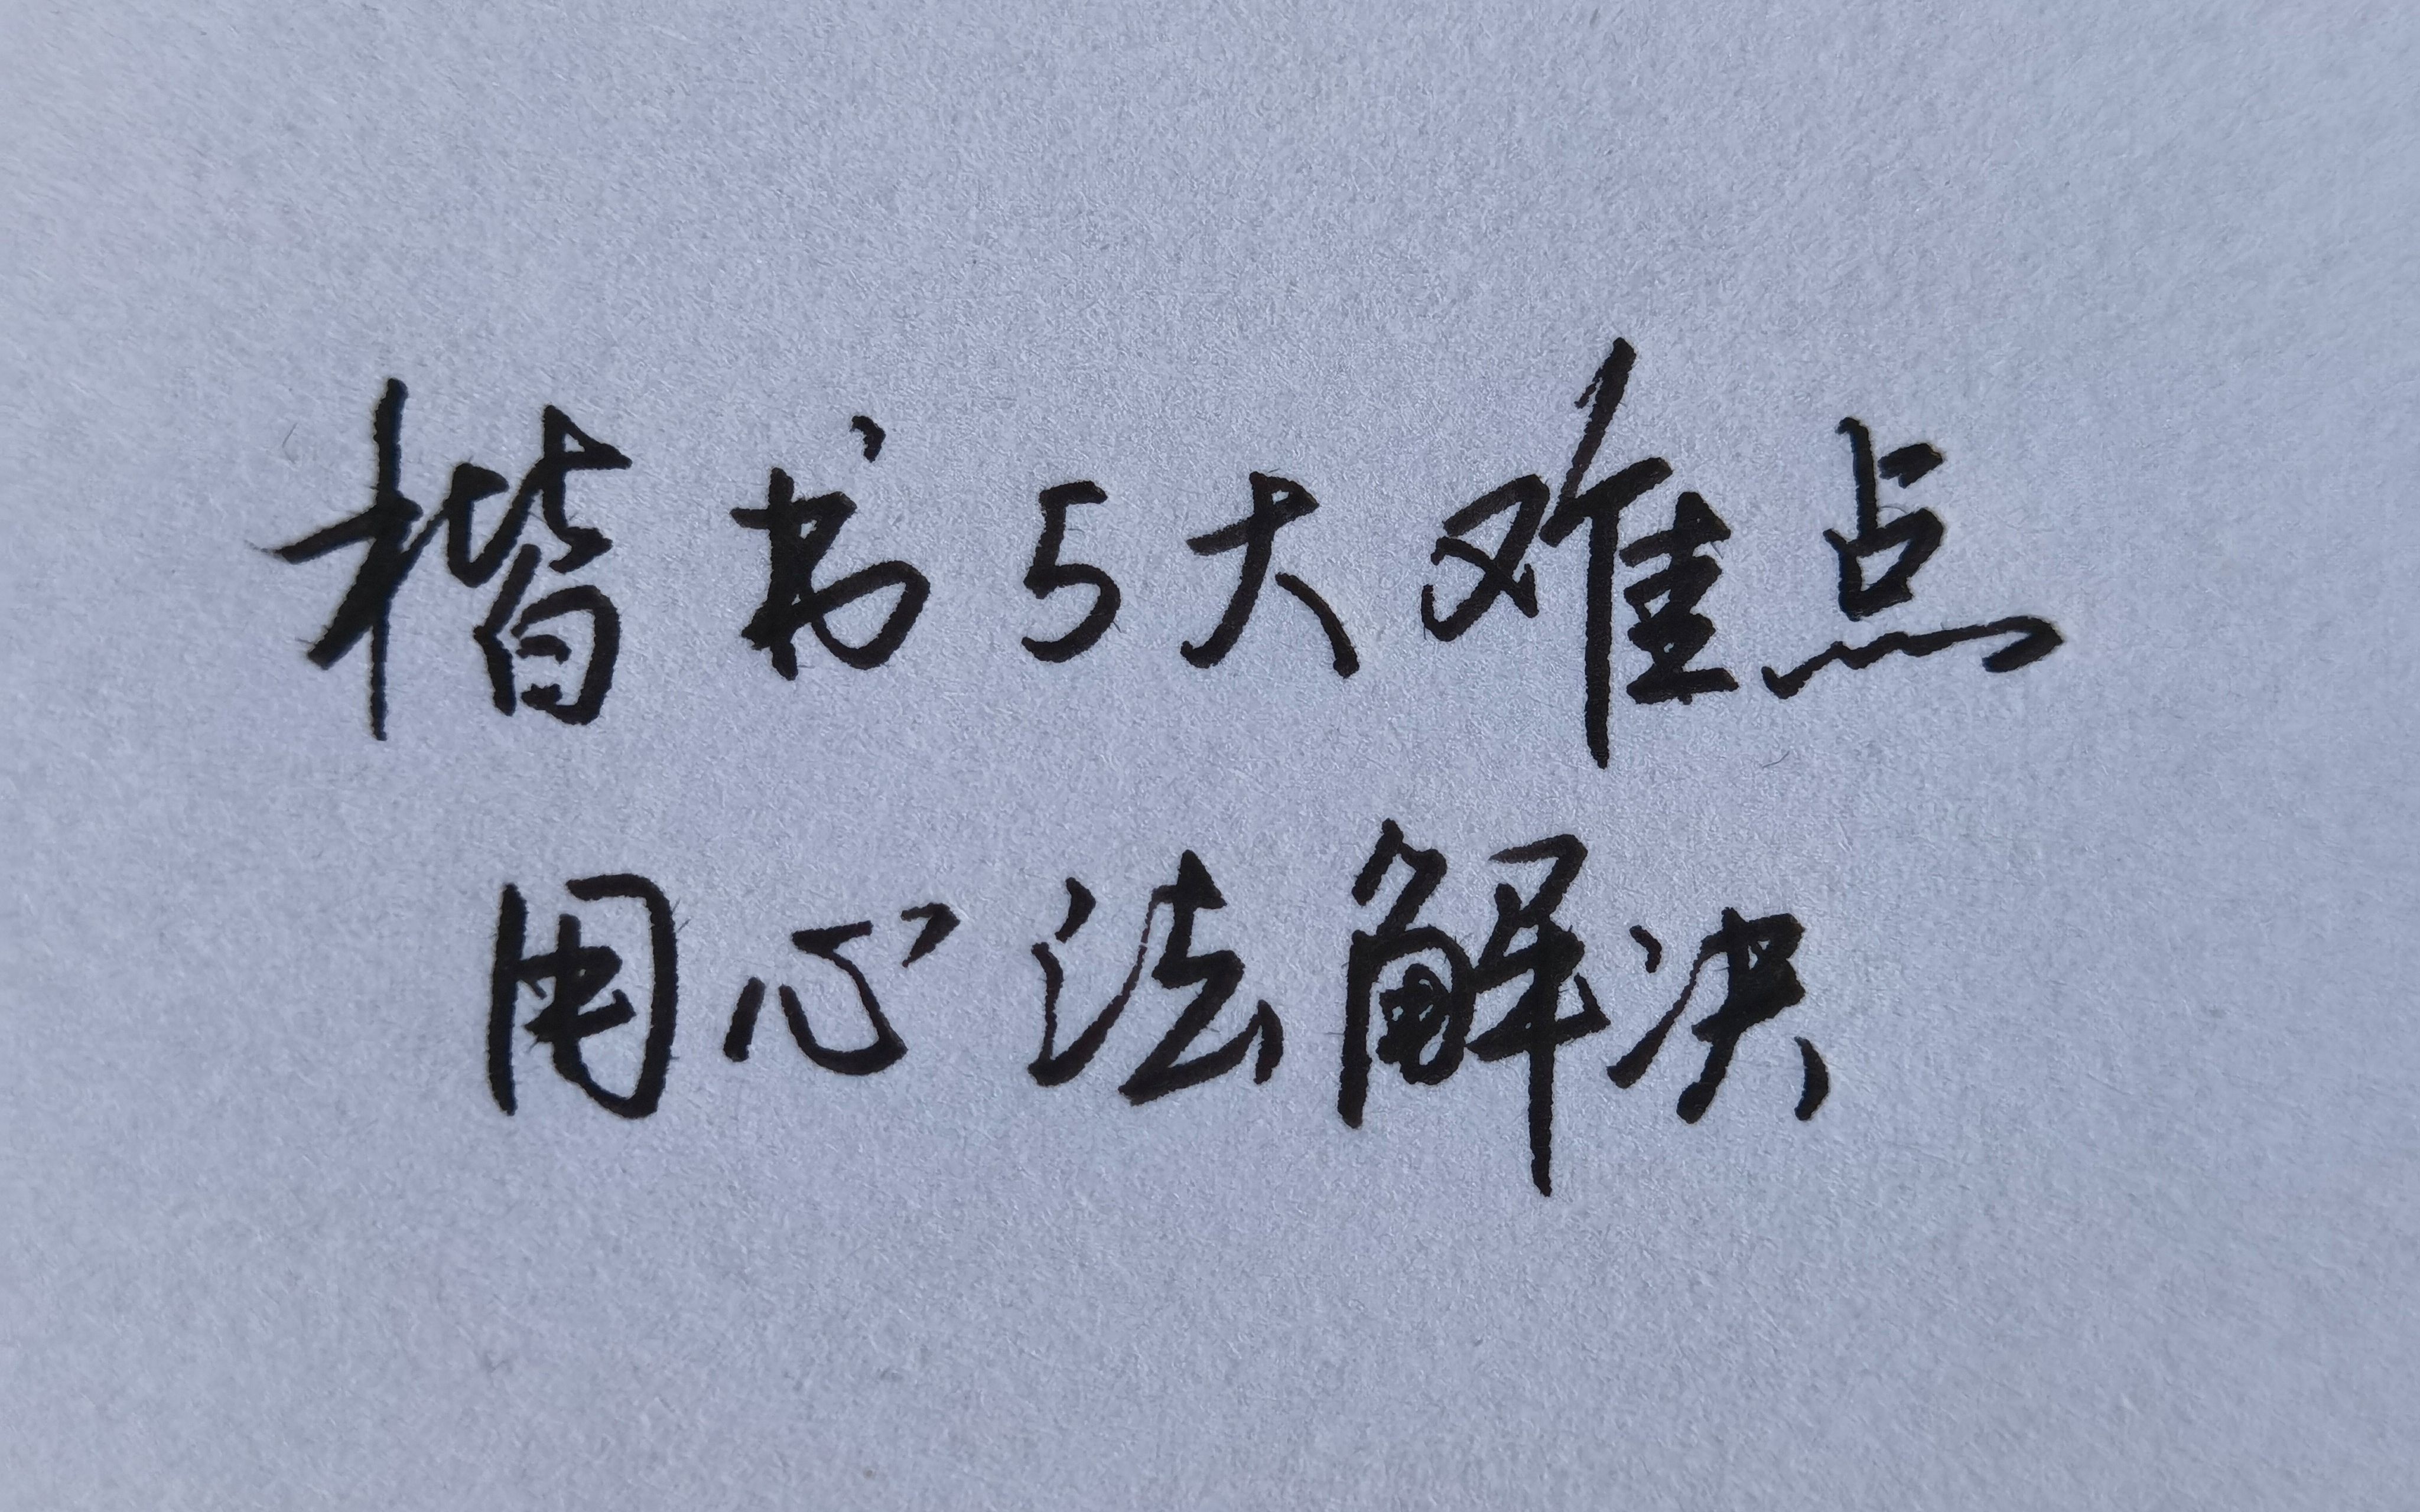 楷书5大难点
用心法解决